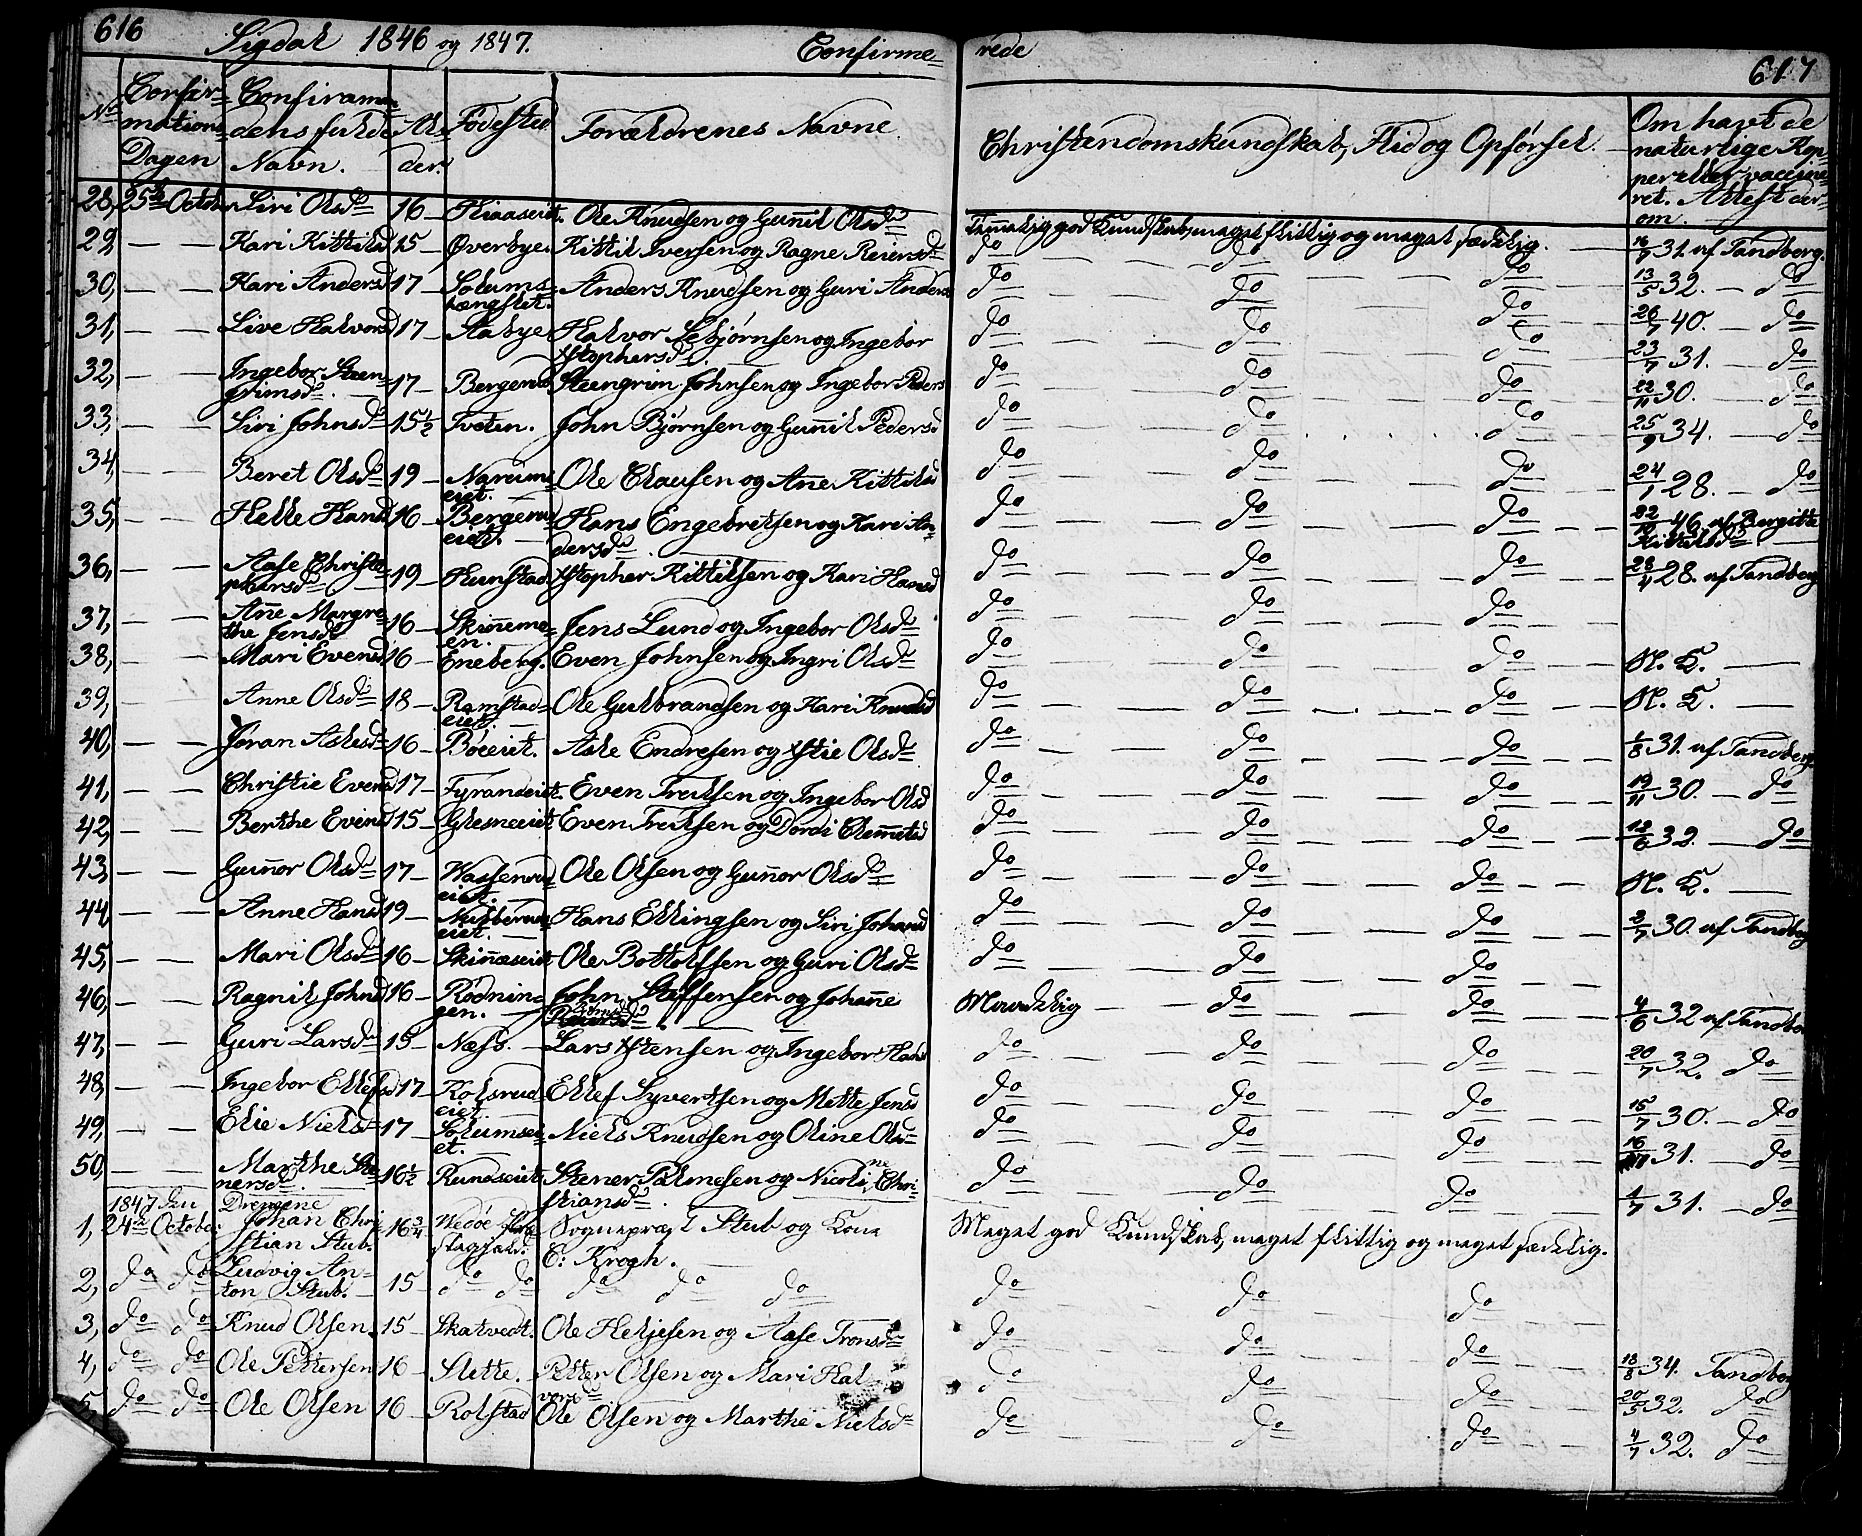 616 Sigdal 1846 og 1847. Confirme= rede 617
No Confir= mations Dagen Confirman dens fulde Navn. Al- der. Fødested Forældrenes Navne. Christendomskundskab, Flid og Opførsel. Om havt de naturlige Kop= per eller vaccine= ret. Attest der= om.
28, 25de Octobr Siri Olsd 16 Ole Knudsen og Gunil Olsd Temmelig god Kundskab, meget flittig og meget sædelig. 16/7 31. af Tandberg.
29, — — Kari Kittilsd 15 — Øverbye. Kittil Iversen og Ragne Reiersd do do do 13/5 32. — do
30, — — Kari Andersd 17 — Solums= Anders Knudsen og Guri Andersd do do do 26/7 40. — do
31, — — Live Halvorsd 17 — Aabye Halvor Sebjørnsen og Ingebor Xstophersd. do do do 23/7 31. — do
32, — — Ingebor Steen= grimsd. 17 — Steengrim Johnsen og Ingebor Peders do do do 22/11 30. do
33, — — Siri Johnsd 15 1/2 Tveten. John Bjørnsen og Gunnil Pedersd do do do 25/9 34. — do
34, — — Beret Olsd 19 — Narum= eiet. Ole Clausen og Anne Kittilsd do do do 24/1 28. — do
35, — — Helle Hansd 16 — Bergerud eiet. Hans Engebretsen og Kari An= dersd. do do do 46. af Bergitte Kittilsd
36, — — Aase Christo= phersd 19 — Hunstad Xstopher Kittilsen og Kari Hansd do do do 23/4 28. af Tandberg
37, — — Anne Margre= the Jensd 16 — Skrinnemo= en. Jens Lund og Ingebor Olsd do do do
38, — — Mari Evensd 16 — Eneberg. Even Johnsen og Ingri Olsd do do do N. K. —
39, — — Anne Olsd 18 — Ramstad= eiet. Ole Gulbrandsen og Kari Knudsd do do do N. K. —
40, — — Jøran Aslesd 16 — Bøeeiet. Asle Endresen og Xstie Olsd do do do 1/8 31. af Tandberg.
41, — — Christie Evensd 17 — Even Trulsen og Ingebor Olsd do do do 19/11 30. — do
42, — — Berthe Evensd 15 — Glesneeiet. Even Trulsen og Dordi Clemetsd do do do 12/6 32. — do
43, — — Gunnor Olsd 17 — eiet. Ole Olsen og Gunnor Olsd do do do N. K. —
44, — — Anne Hansd 19 — eiet Hans Ellingsen og Siri Johansd do do do 2/7 30. af Tandberg
45, — — Mari Olsd 16 — Skinnæseiet Ole Bottolfsen og Guri Olsd do do do
46, — — Ragnil Johnsd 16 — Rødnin= gen. John Staffensen og Johanne Moradlig do do 4/6 32 af Tandber
47, — — Guri Larsd 15 — Næss. — Lars Xstensen og Ingebor Hansd do do do 20/7 32. do
48, — — Ingebor Ellefsd 17 — Kolsrud eiet. Ellef Syvertsen og Mette Jensd do do do 15/7 30. — do
49, — — Elie Nielsd 17 — Solumsei= et. Niels Knudsen og Oline Olsd do do do 31. — do
50, — — Marthe Ste= nersd. 16 1/2 Rundseiet Stener Palmesen og Nicoline Chri= stiansd. do do do 4/7 31. — do
1847 Drengene
1, 24de October Johan Chri= stian Stub. 16 3/4 Sogneprest Stub og Kone C: Krogh. Meget god Kundskab, meget flittig og meget sædelig.
2, do do Ludvig An= ton Stub. 15 do do do do do do do do
3, do do Knud Olsen. 15 — Skalvedt. Ole Heljesen og Aase Tronsd do do do 18/8 34. Tandberg
4, do do Ole Pettersen 16 — Slette. Petter Olsen og Mari Hal= vorsd do do do 20/5 32. do
5, do do Ole Olsen 16 — Rolstad Ole Olsen og Marthe Nielsd do do do 4/7 32. do